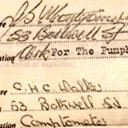 J S Montgomery
53 Bothwell St
Clerk For The Pumph
C. H. C. Waller
53 Bothwell St
Comptometer